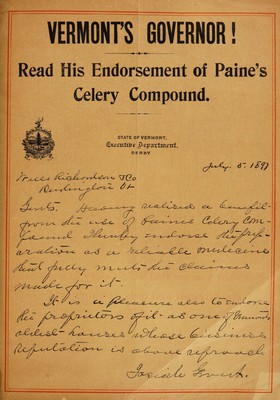 VERMONT'S GOVERNOR!
Read His Endorsement of Paine's
Celery Compound.
STATE OF VERMONT,
Executive Department,
DERBY
July. 5. 1897
Wells Richardson & Co
Burlington Vt
Gents. Having realized a benefit
from the use of Paines Celery Com-
pound I hereby endorse the prep-
aration as a reliable medicine
that fully meets the claims
made for it.
It is a pleasure also to endorse
the proprietors of it as one of Vermonts
oldest houses whose business
reputation is above reproach
Josiah Grout.